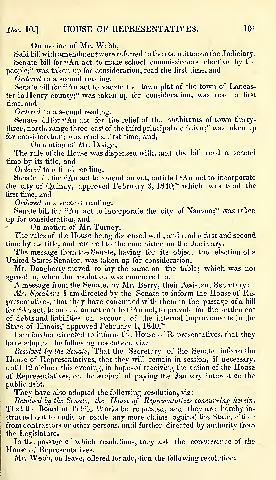 Dec. 10.] HOUSE OF REPRESENTATIVES. 10
On motion of Mr. Webb,
Said bill with amendment were referred to the committee on the Judiciary.
Senate bill for "An act to make school commissioners elective by the
people," was taken up for consideration, read the first time, and
Ordered to a second reading.
Senate bill for "An act to vacate the town plat of the town of Lancas-
ter in county," was taken up for consideration, was read a first
time, and
Ordered to a second reading.
Senate bill for "An act for the relief of the inhabitants of town thirty-
three, north, range three east of the third principal meridian," was taken up
for consideration; was read a first time, and,
On motion of Mr. Dodge,
The rule of the House was dispensed with, and the bill read a second
time by its title, and
Ordered to a third reading.
Senate bill for "An act to amend an act, entitled 'An act to incorporate
the city of Quincy, approved February 3, 1840,'" which was read the
first time, and
Ordered to a second reading.
Senate bill for "An act to incorporate the city of Nauvoo," was taken
up for consideration, and
On motion of Mr. Turney,
The rules of the House being dispensed with, and read a first and second
time by its title, and referred to the committee on the Judiciary.
The message from the Senate, having for its object the election of a
United States Senator, was taken up for consideration.
Mr. Dougherty moved to lay the same on the table; which was not
agreed to, when the resolution was concurred in.
A message from the Senate, by Mr. Berry, their Assistant Secretary:
Mr. Speaker: I am directed by the Senate to inform the House of Re-
presentatives, that they have concurred with them in the passage of a bill
for "An act to amend an act entitled 'An act to provide for the settlement
of debts and liabilities on account of the internal improvements in the
State of Illinois,' approved February 1, 1840."
I am further directed to inform the House of Representatives, that they
have adopted the following resolution, viz:
Resolved by the Senate, That the Secretary of the Senate inform the
House of Representatives, that they will remain in session, if necessary,
until 12 o'clock this evening, in hopes of receiving the action of the House
of Representatives, on the subject of paying the January interest on the
public debt.
They have also adopted the following resolution, viz:
Resolved by the Senate, the House of Representatives concurring herein,
That the Board of Public Works be requested, and they are hereby in-
structed not to audit or settle any more claims against this State, either
from contractors or other persons, until further directed by authority from
the Legislature.
In the passage of which resolutions, they ask the concurrence of the
House of Representatives.
Mr. on leave, offered for adoption the following resolution: